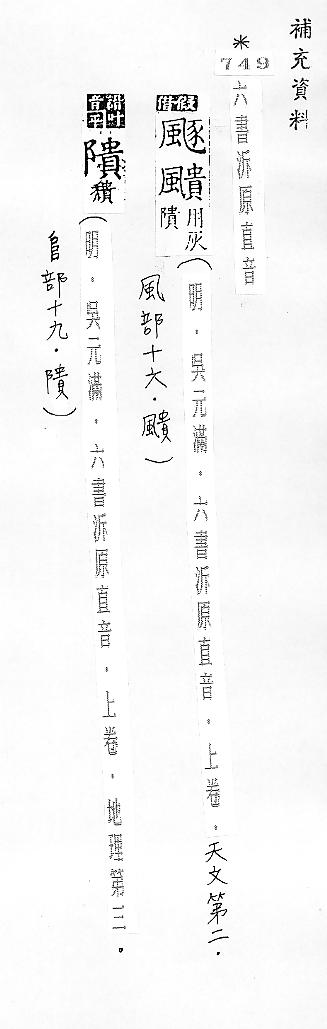 補充資料
*
749
六書泝原直音
假借
飈䫭用灰隤
(明.吳元滿.六書泝原直音.上卷.天文第二.
風部十六.䫭)
諧叶音平
隤穨
(明.吳元滿.六書泝原直音.上卷.地理第三.
𨸏部十九.隤)